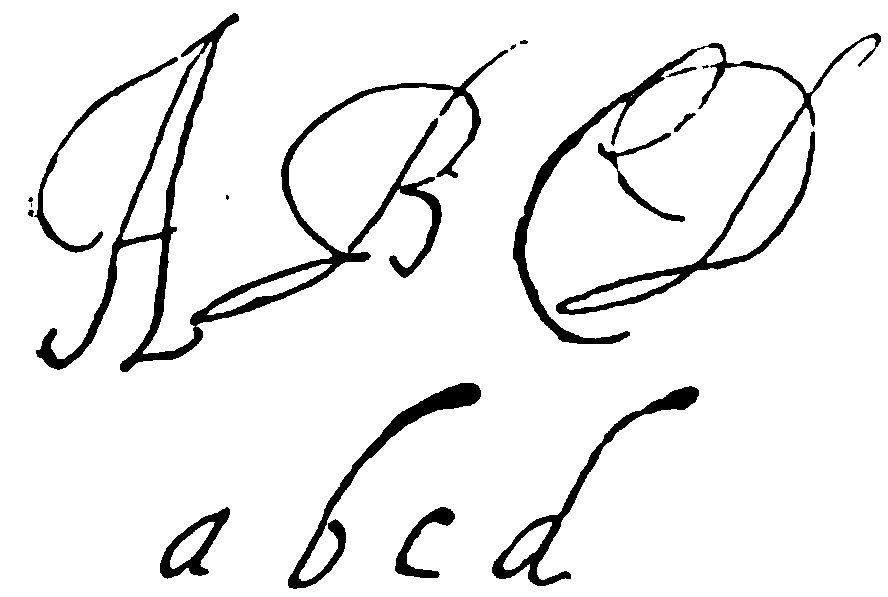 A B C D
a b c d